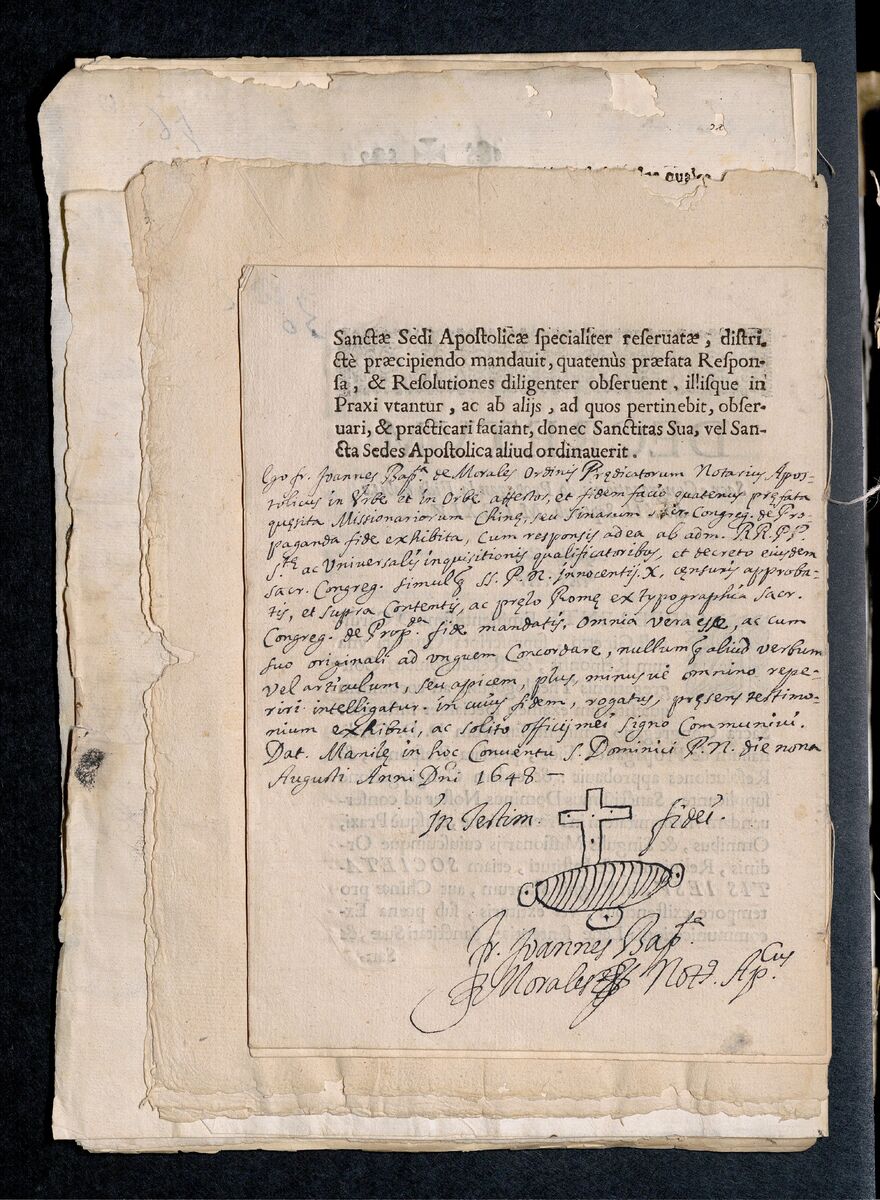 Sanctæ Sedi Apostolicæ specialiter reseruatæ, distri-
ctè præcipiendo mandauit, quatenùs præfata Respon-
sa, & Resolutiones diligenter obseruent, illisque in
Praxi vtantur, ac ab alijs, ad quos pertinebit, obser-
uari, & practicari faciant, donec Sanctitas Sua, vel San-
cta Sedes Apostolica aliud ordinauerit.
Ego fr. Joannes Bap.ta de Morales Ordinis Prędicatorum Notarius Apos-
tolicus in Vrbe et in Orbe attestor, et fidem facio quatenus pręfata
quęsita Missionariorum Chinę, seu Sinarum Congreg. de Pro-
paganda fide exhibita, cum responsis ad ea ab adm. RR.PP.
S.tę ac Vniversalis inquisitionis qualificatoribus, et decreto eiusdem
sacr. Congreg. simulq SS. P. N. Innocentij. X. censuris approba-
tis, et supra contentis, ac pręlo Romę ex typographia sacr.
Congreg. de Prop.da fide mandatis, omnia vera esse, ac cum
suo originali ad vnguem concordare, nullumq aliud verbum
vel articulum, seu apicem, plus, minusvè omnino repe-
riri intelligatur. in cuius fidem, rogatus, pręsens testimo-
nium exhibui, ac solito officij mei signo communivi.
Dat. Manilę in hoc Conventu S. Dominici P. N. die nona
Augusti Anni Dñi 1648 —
In Testim. fidei.
fr. Joannes Bap.ta
Morales Not9. Ap.cus